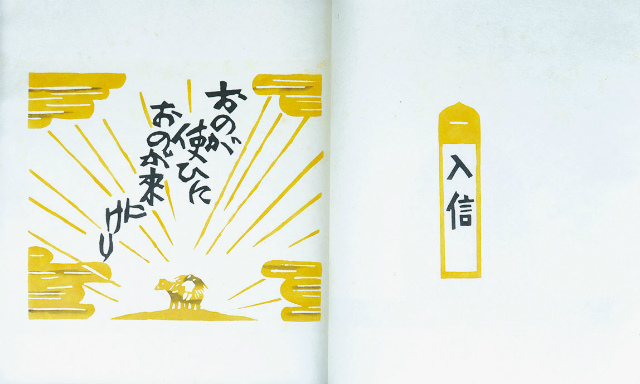 入信
おのが
使ひに
おのが来に
けり